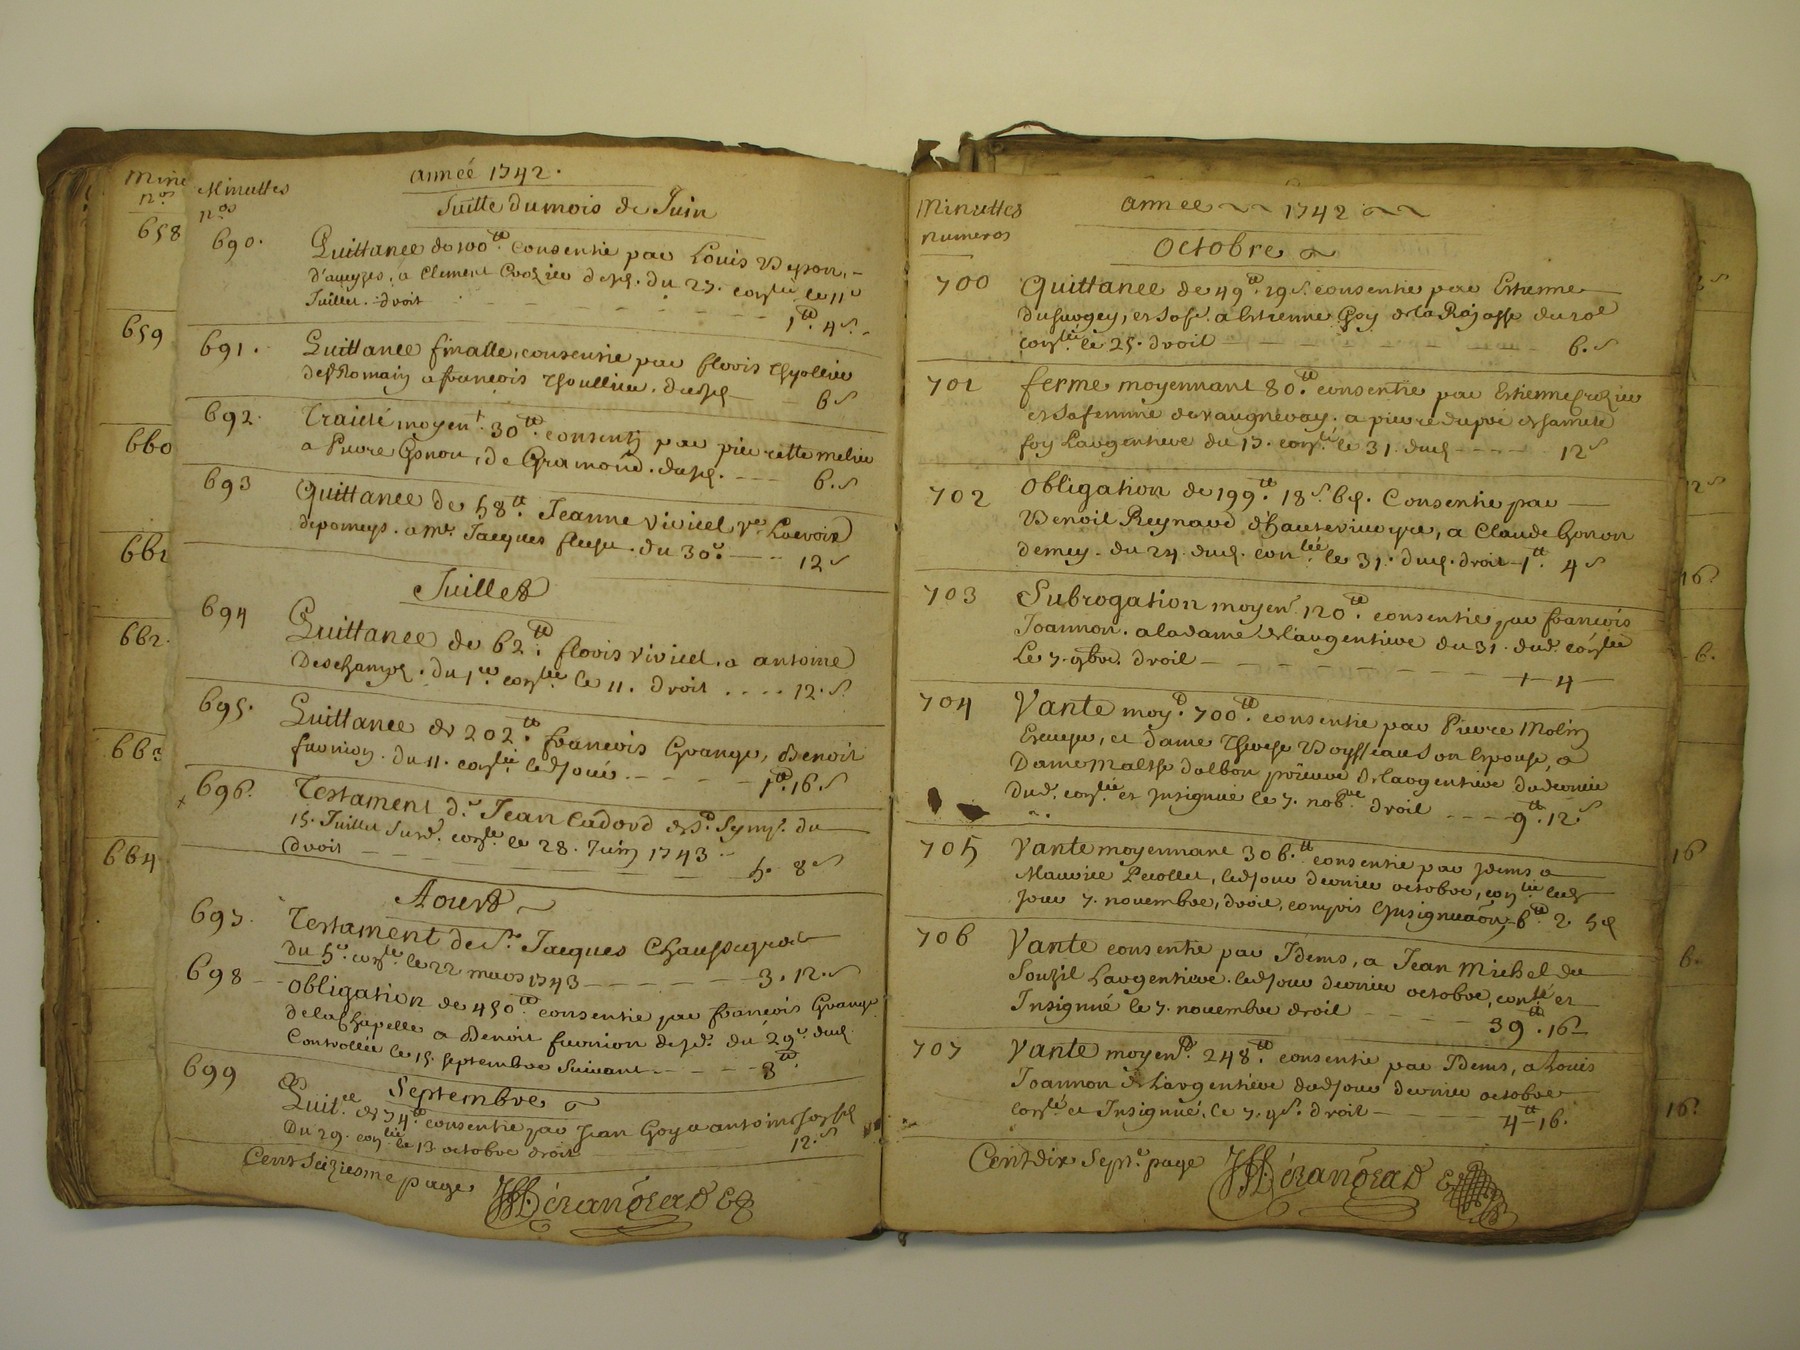 Minu
nos
658
659
660
661
662.
663
664
Minuttes
nos
année 1742.
Suitte du mois de Juin
690. Quittance de 100tt consentie par Louis
a Clement Crozier dud. du 27. conlé le 11e
Juillet. droit 1tt. 4s.
691. Quittance finalle, consentie par fleuris
de st Romain a francois dud 6s
692. Traidé moyent. 30tt. consenti par
a Pierre Gonon, de Gramond. dud. 6.s
693 Quittance de 58tt. Jeanne vivieil ve
a me. Jacques du 30e 12s
Juillet
694 Quittance de 62tt. fleuris vivieil. a antoine
Deschamps. du 1er conlée le 11. droit 12.s.
695. Quittance de 202tt. francois Grange, a Benoit
furnion. du 11. conlée led jour 1tt.16.s
696. Testament de Jean Cadord de St. Symp. du
15. Juillet conlé. le 28. Juin 1743
droit 5. 8s
Aoust
697. Testament de Sr. Jacques
du 5e. conlé. le 22 mars 1743 3. 12.s
698 Obligation de 450tt consentie par francois Grange
de la Chapelle a Benoit furnion dud. du 29e. dud
Controllée le 15. septembre suivant 3tt.
Septembre
699 Quitce de 74tt. consentie par Jean Goy a antoine
Du 29. conlée le 13 octobre droit 12.s
Cent seiziesme page
Minuttes
numeros
année 1742
Octobre
700 Quittance de 49tt. 19s. consentie par Estienne
a Estienne Goy de la Rajasse du 20e
conlée le 25. droit 6.s
701 ferme moyennant 80.tt consentie par Estienne Crozier
et sa femme de vaugneray. a pierre dupré et famille
foy Largentiere du 17. conlé le 31. dud 12s
702 Obligation de 199tt. 18s. 6d. Consentie par
Benoit Reynaud d'hauterivoire, a Claude Gonon
demeys. du 24. dud. conlée le 31. dud. droit 1tt. 4s
703 Subrogation moyent. 120tt. consentie par francois
Joannon. a la dame de Largentiere du 31. dud. conlée
Le 7. 9bre. droit 1 4
704 Vante moyt. 700tt. consentie par Pierre Molin
Ecuyer, et dame son Epouse, a
Dame dalbon prieure de Largentiere du dernier
Dud. conlée et Insignué le 7. nobre droit 9tt. 12s
705 Vante moyennant 306.tt consentie par Idems a
Maurice Pecollet, led jour dernier octobre, conlée led
jour 7. novembre, droit, compris Insignuaon 6tt 2. 5d
706 Vante consentie par Idems, a Jean Michel de
Souzil Largentiere. led jour dernier octobre, conlé et
Insignué le 7. novembre droit 39tt. 16s
707 Vante moyent. 248tt. consentie par Idems, a Louis
Joannon de Largentiere dud jour dernier octobre
conlé et Insignué, le 7. droit 4tt 16.
Cent dix septe page